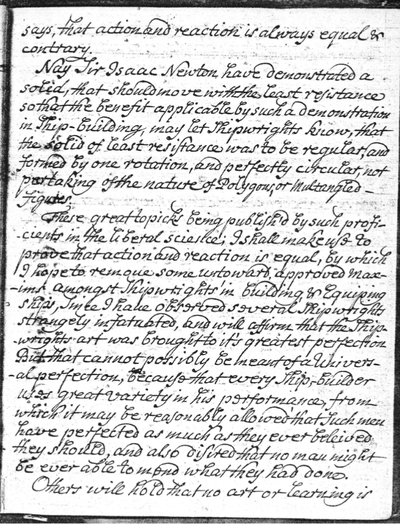 says, that action and reaction is always equal &
contrary.
Nay Sir Isaac Newton have demonstrated a
solid, that should move with the least resistance
so that the benefit applicable by such a demonstration
in Ship-building, may let Shipwrights know, that
the solid of least resistance was to be regular, and
formed by one rotation, and perfectly circular, not
pertaking of the nature of Polygons, or Multangled
figures,
These great topicks being publish'd by such profi-
cients in the liberal science; I shall make use to
prove that action and reaction is equal, by which
I hope to remoue some untoward, approved Max-
-ims amongst Shipwrights in building & Equiping
ships, Since I haue observed several Shipwrights
strangely infatuated, and will affirm that the Ship-
wrights art was brought to it's greatest perfection
But that cannot possibly be meant of a Univers-
-al perfection, because that every Ship-builder
uses great variety in his performance, from
which it may be reasonably allowed that Such men
have perfected as much as they ever beleived
they should, and also disired that no man might
be ever able to mend what they had done.
Others will hold that no art or learning is